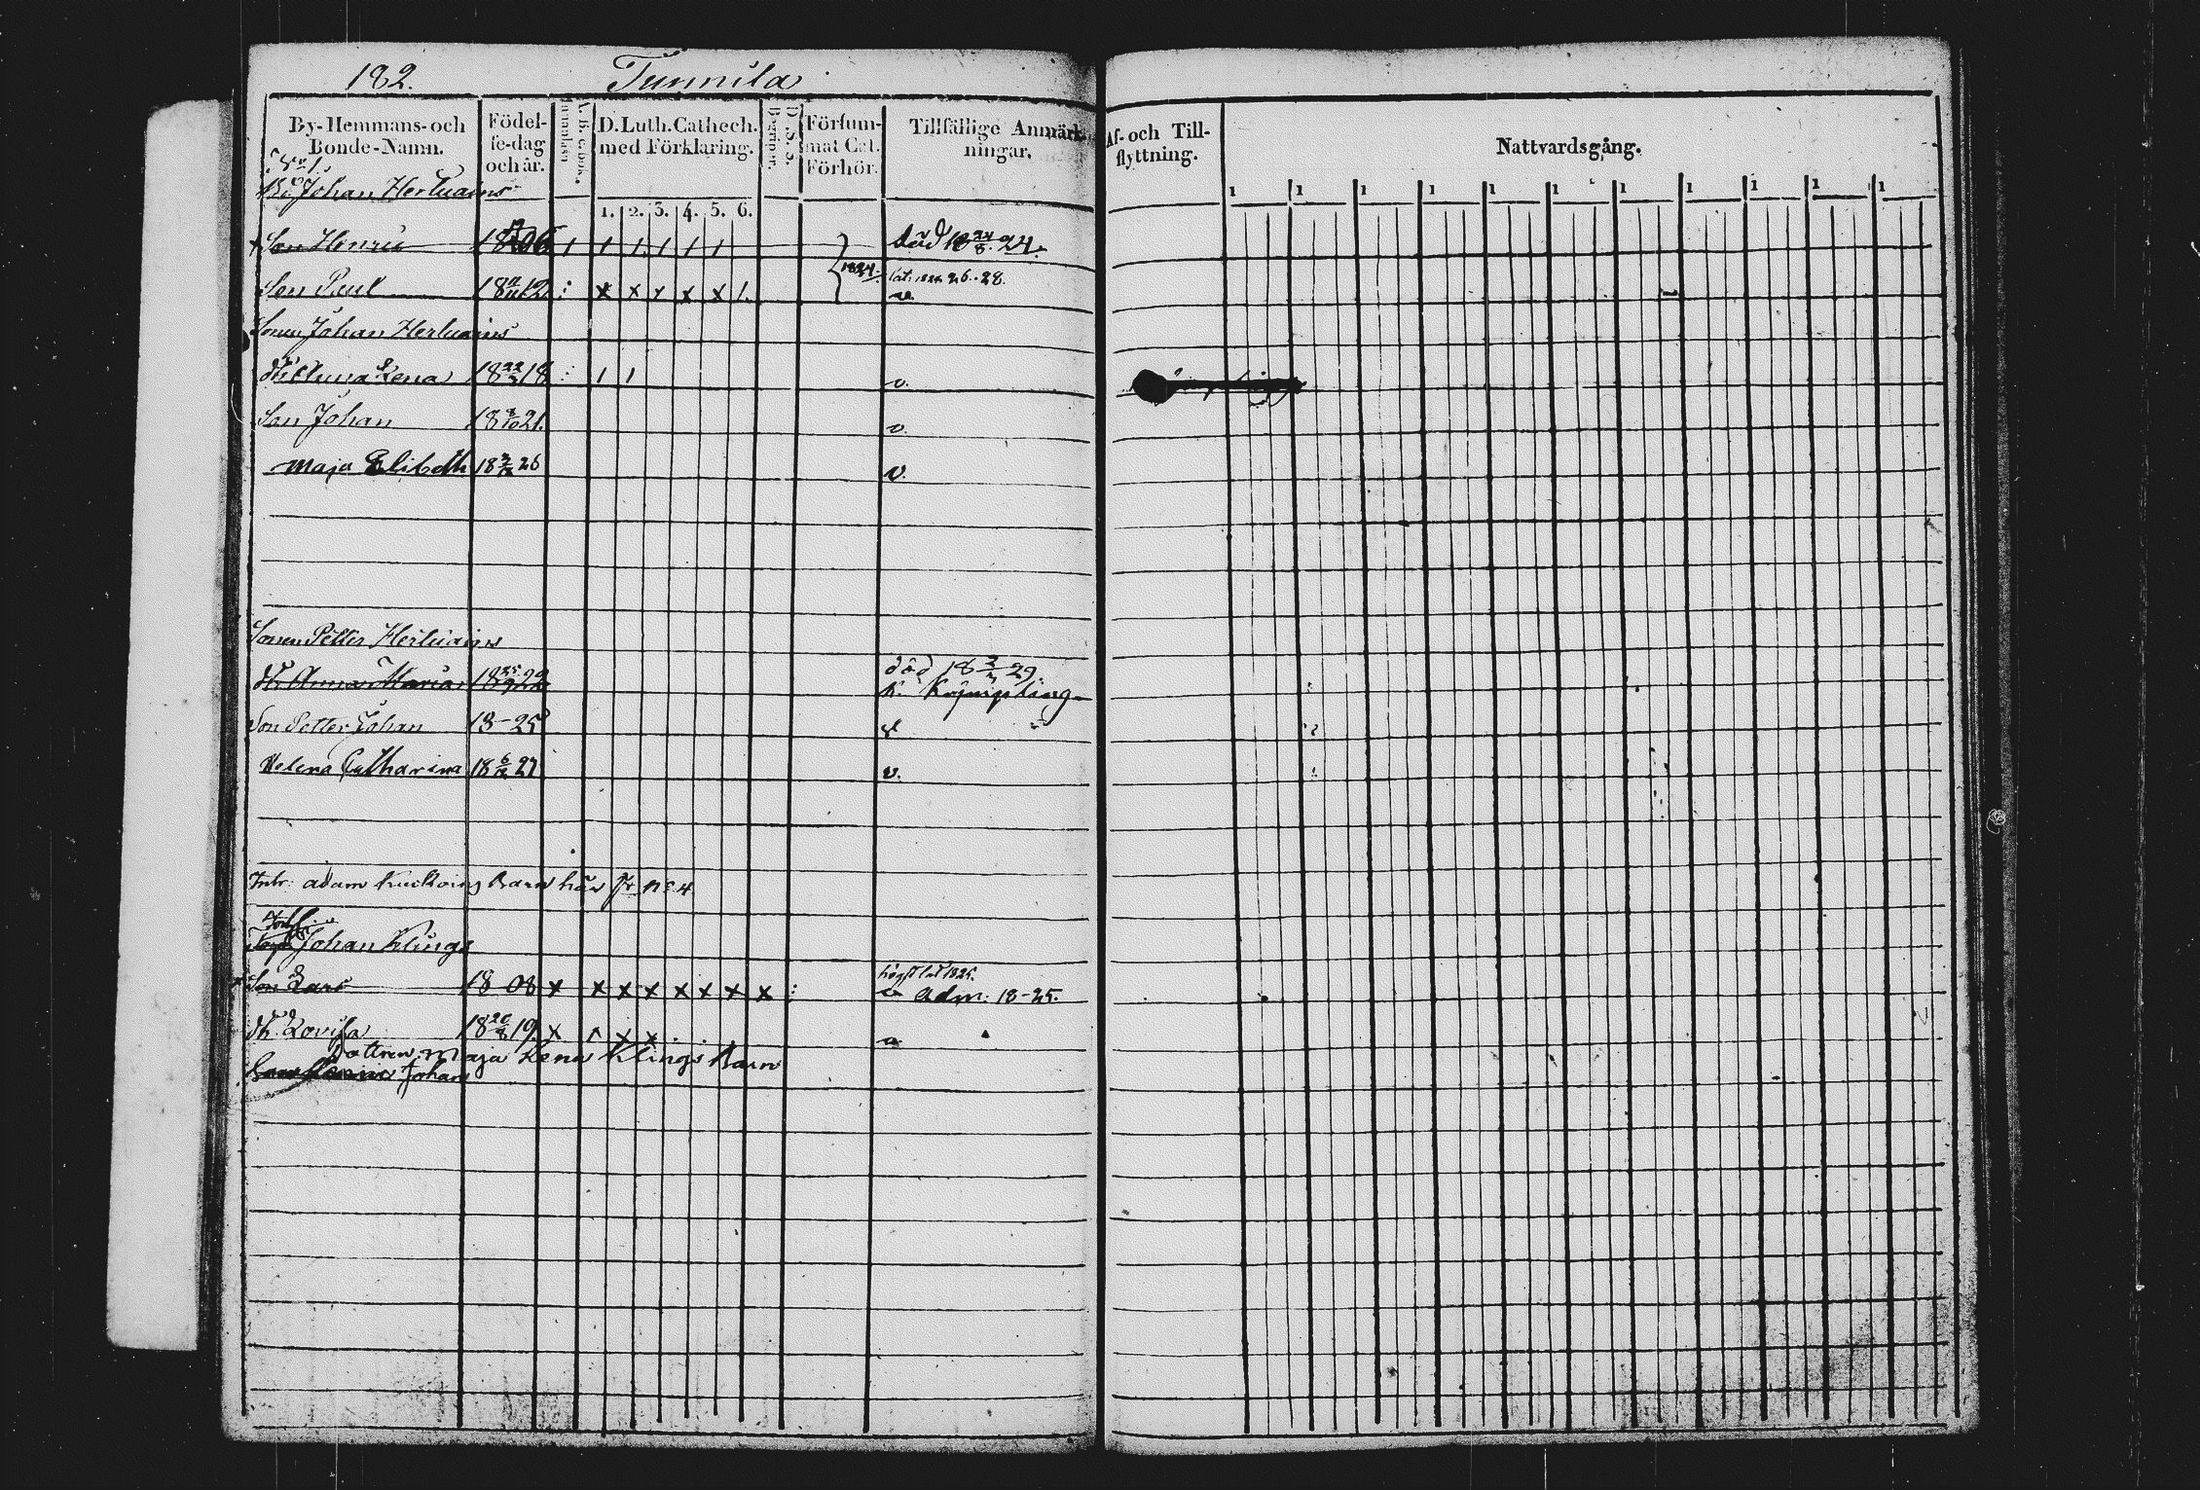 182. Tunnila
By-Hemmans- och Bonde-Namn. Födel-se-dag och år. D. Luth. Cathech. med Förklaring. Försum-mat Cat. Förhör. Tillfällige Anmärk-ningar. Af- och Till-flyttning. Nattvardsgång.
No 1.
Johan Herluains
1. 2. 3. 4. 5. 6. 1 1 1 1 1 1 1 1 1 1 1
Son Henric 1806 1 1 1 1 1 1 död 18 24/8 24.
Son Paul 18 12 : x x x x x 1. 1824. 26. 28.
Sonen Johan Herluains
dr. Anna Lena 18 22/3 18 : 1 1 v.
Son Johan 18 8/10 21. v.
Maja Elisbeth 18 26 v.
Sonen Petter Herluains
död 18 29.
dr. Anna Maria 18 22 k.
Son Petter Johan 18-25 v
Helena Catharina 18 6/12 27 v.
Inh: adam Barn här No 4
Johan Klings
1825.
Son Lars 18 08 x x x x x x x x : Adm: 18-25.
dr. Lovisa 18 20/8 19. x x x a
dottren Maja Lena Klings Barn
Johan